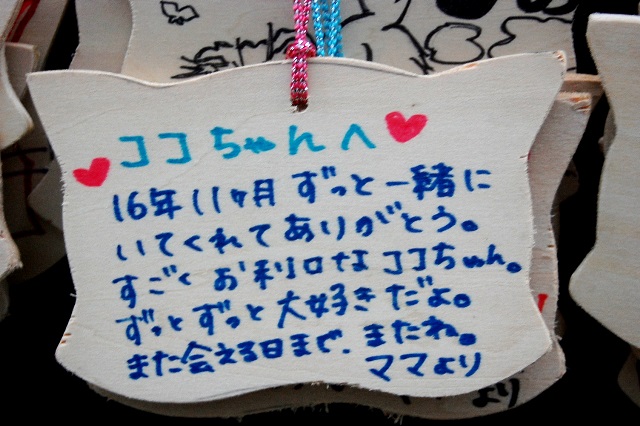 ココちゃんへ
16年11ヶ月ずっと一緒に
いてくれてありがとう。
すごくお利口なココちゃん。
ずっとずっと大好きだよ。
また会える日まで、またね。
ママより
より